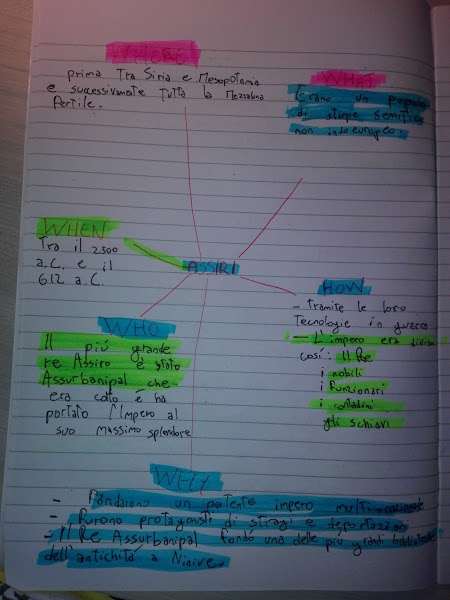 WHERE
prima Tra Siria e Mesopotamia
e successivamente Tutta la Mezzaluna
fertile.
WHAT
Erano un popolo
di stirpe semitica
non indoeuropeo.
WHEN
Tra il 2300
a.C. e il
612 a.C.
ASSIRI
HOW
- Tramite le loro
Tecnologie in guerra
- L'impero era diviso
così: Il Re
i nobili
i funzionari
i contadini
gli schiavi
WHO
Il più grande
re Assiro è stato
Assurbanipal che
era colto e ha
portato l'Impero al
suo massimo splendore
WHY
- Fondarono un potente impero
- Furono protagonisti di stragi e deportazioni
- Il Re Assurbanipal fondò una delle più grandi biblioteche
dell'antichità a Ninive.